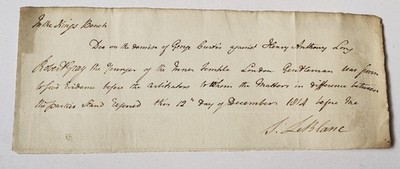 In the Kings Bench
Doe on the demise of George Curtis against Henry Anthony
Robert Gray the Younger of the Inner Temple London Gentleman was sworn
to give Evidence before the arbitrators to Whom the Matters in difference between
the parties Stand referred this 12th day of December 1814 before Me
S. Le Blanc